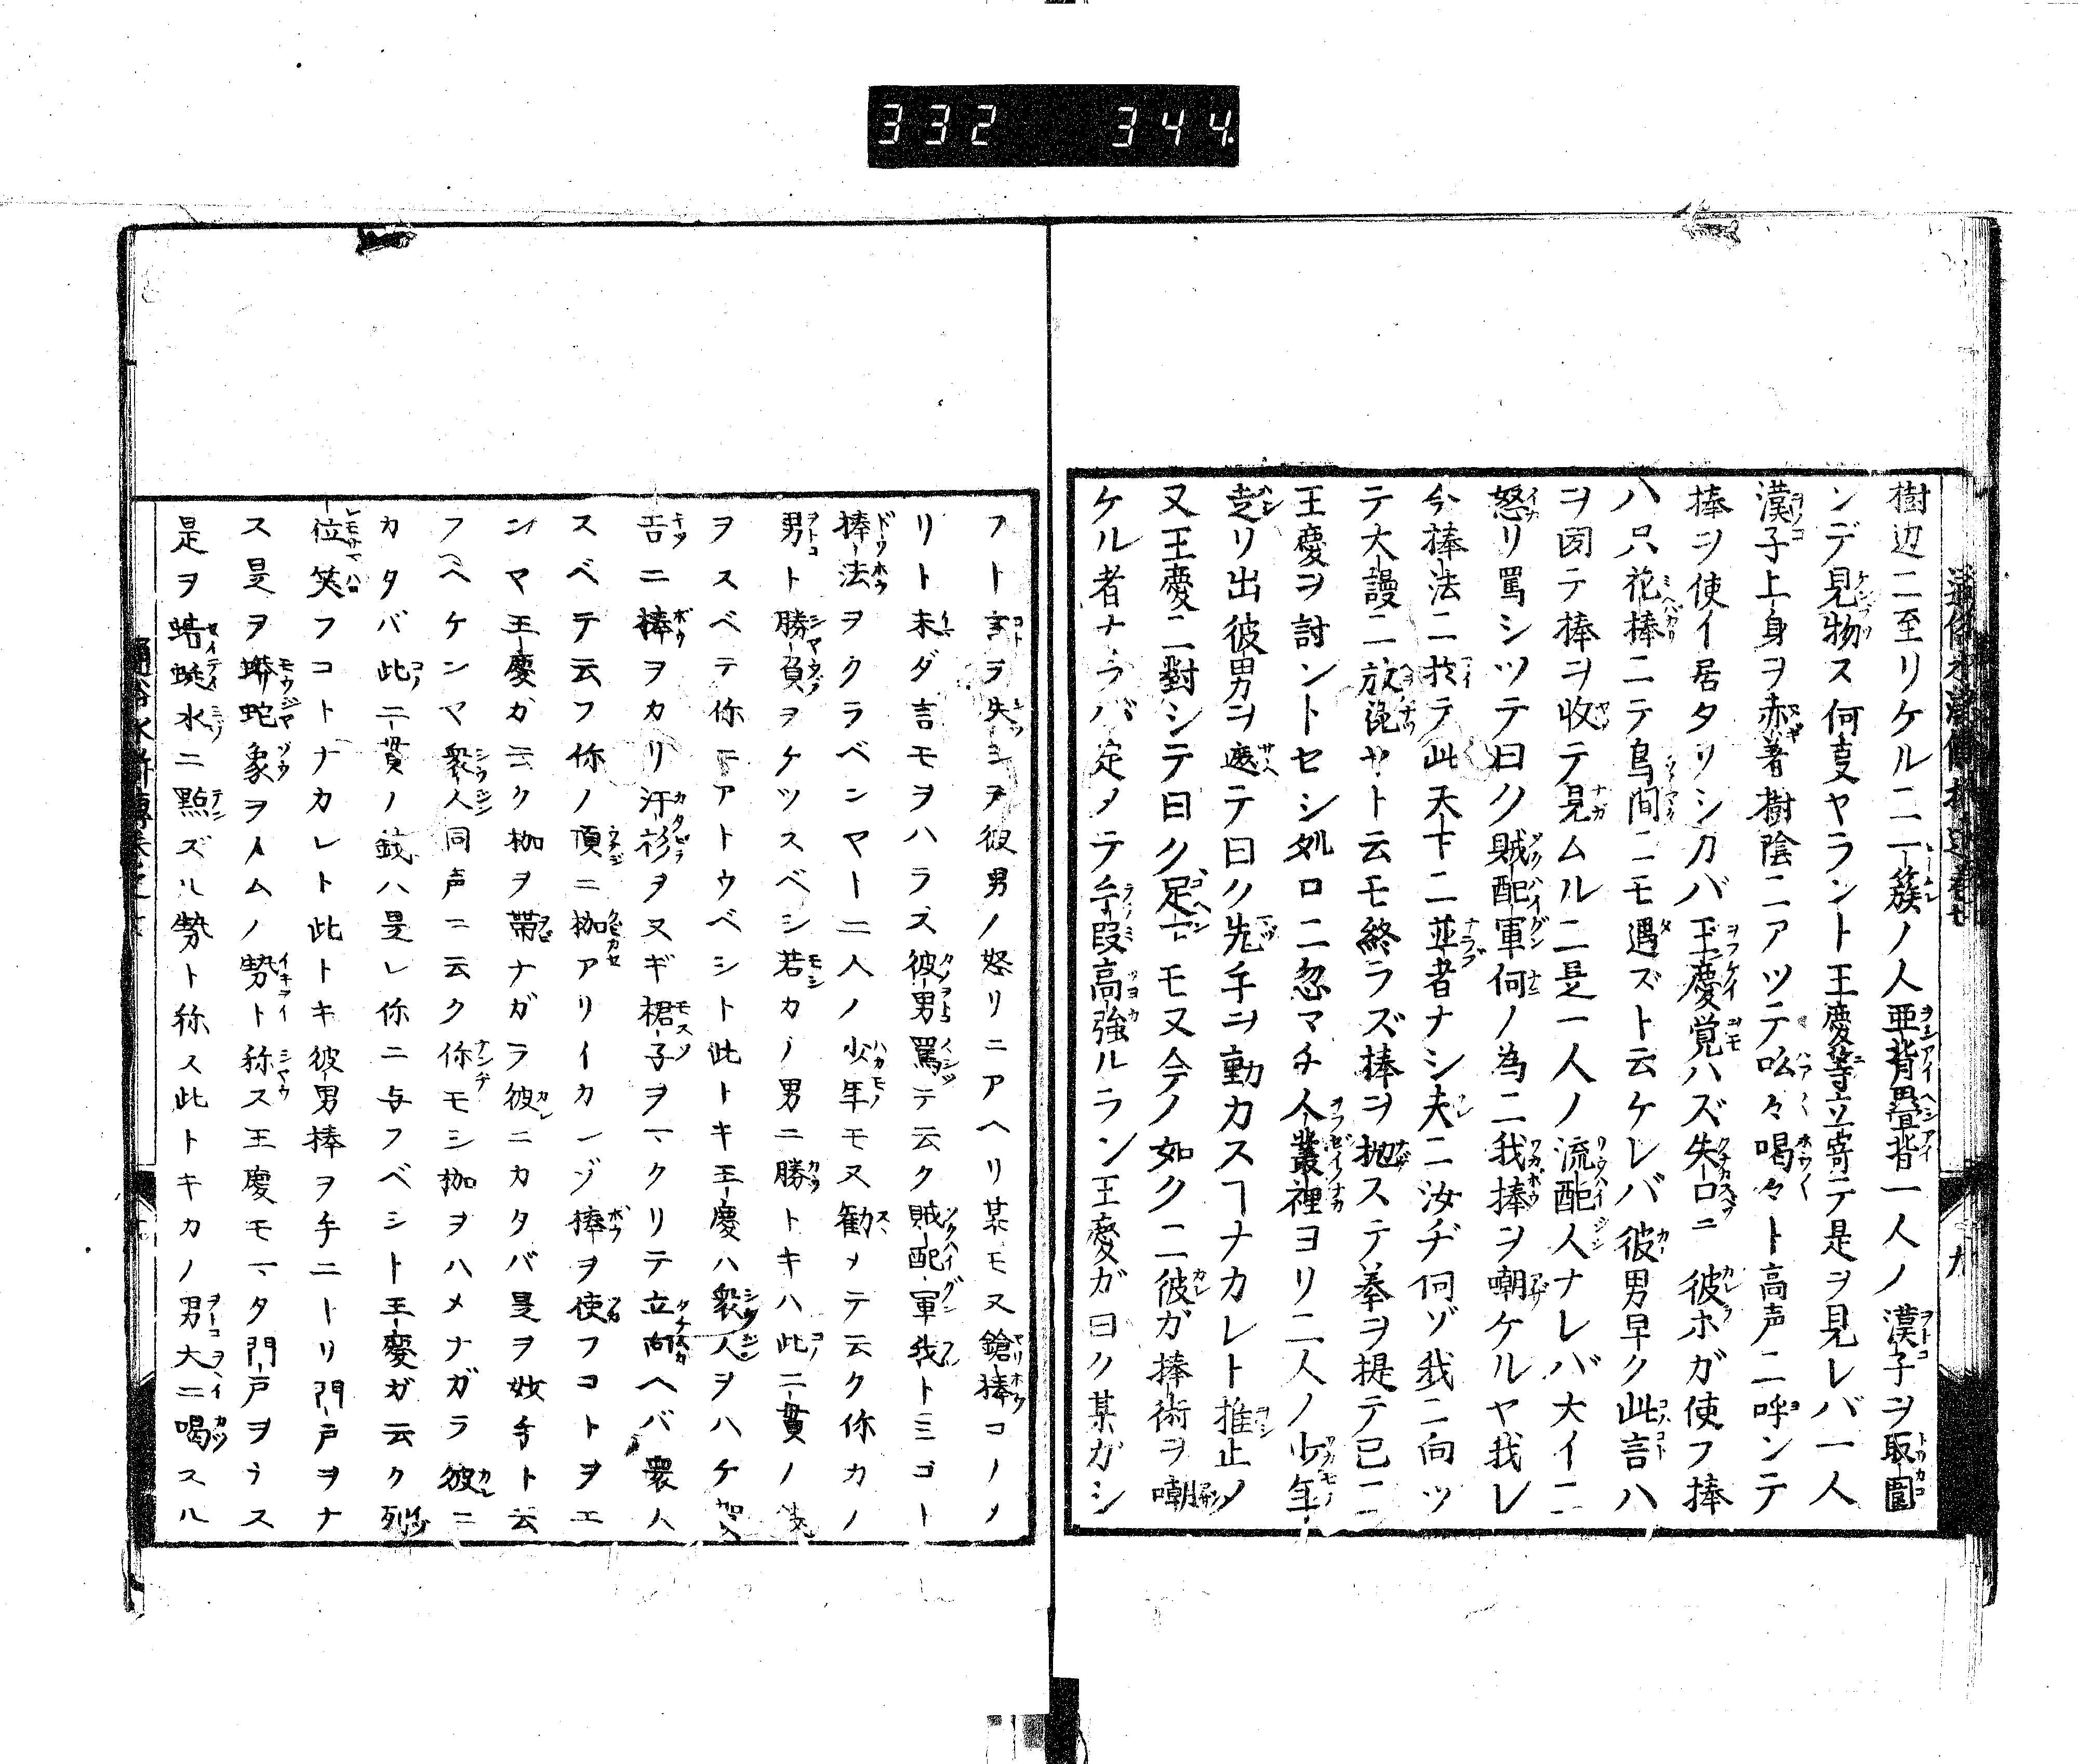 332 344.
樹辺ニ至リケルニ一簇ノ人亜背畳背一人ノ漢子ヲ取圍
ンデ見物ス何事ヤラント王慶等立寄テ是ヲ見レバ一人
漢子上身ヲ赤著樹陰ニアツテ吆々喝々ト高声ニ呼ンテ
捧ヲ使イ居タリシカバ王慶覚ハズ失口ニ彼ホガ使フ捧
ハ只花捧ニテ鳥間ニモ遇ズト云ケレバ彼男早ク此言ハ
ヲ図テ捧ヲ收テ見ムルニ是一人ノ流配人ナレバ大イニ
怒リ罵シツテ曰ク賊配軍何ノ為ニ我捧ヲ嘲ケルヤ我レ
今捧法ニ於テ此天下ニ並者ナシ夫ニ汝ヂ何ゾ我ニ向ツ
テ大謾ニ放ヤト云モ終ラズ捧ヲ抛ステ拳ヲ提テ已ニ
王慶ヲ討ントセシ処ロニ忽マチ人叢裡ヨリ二人ノ少年
走リ出彼男ヲ遮テ曰ク先手ヲ動カスヿナカレト推止メ
又王慶ニ對シテ曰ク足下モ又今ノ如クニ彼ガ捧術ヲ嘲
ケル者ナラバ定メテ手段高強ルラン王慶ガ曰ク某ガシ
フト言ヲ失シヲ彼男ノ怒リニアヘリ某モ又鎗捧コノメ
リト未ダ言モヲハラズ彼男罵テ云ク賊配軍我トミゴト
捧法ヲクラベンマト二人ノ少年モ又勸メテ云ク你カノ
男ト勝負ヲケツスベシ若カノ男ニ勝トキハ此二貫ノ
ヲスベテ你ニアトウベシト此トキ王慶ハ衆人ヲハケ
舌ニ捧ヲカリ汗衫ヲヌギ裙子ヲマクリテ立向ヘバ衆人
スベテ云フ你ノ頂ニ枷アリイカンゾ捧ヲ使フコトヲエ
ンマ王慶ガ云ク枷ヲ帯ナガラ彼ニカタバ是ヲ妙手ト云
フヘケンマ衆人同声ニ云ク你モシ枷ヲハメナガラ彼ニ
カタバ此二貫ノ銭ハ是レ你ニ与フベシト王慶ガ云ク列
位笑フコトナカレト此トキ彼男捧ヲ手ニトリ門戸ヲナ
ス是ヲ蟒蛇象ヲノムノ勢ト称ス王慶モマタ門戸ヲナス
是ヲ蜻蜓水ニ點ズル勢ト称ス此トキカノ男大ニ喝スル